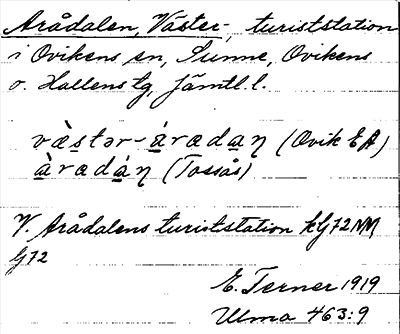 Arådalen, Väster-, turiststation
i Ovikens sn, Sunne, Ovikens
o. Hallens tg, Jämtl. l.
vɛ̀stər-áradaɳ (Ovik EA)
àradáɳ (Tossås)
V. Arådalens turiststation kG72NM
G72
E. Terner 1919
Ulma 463:9